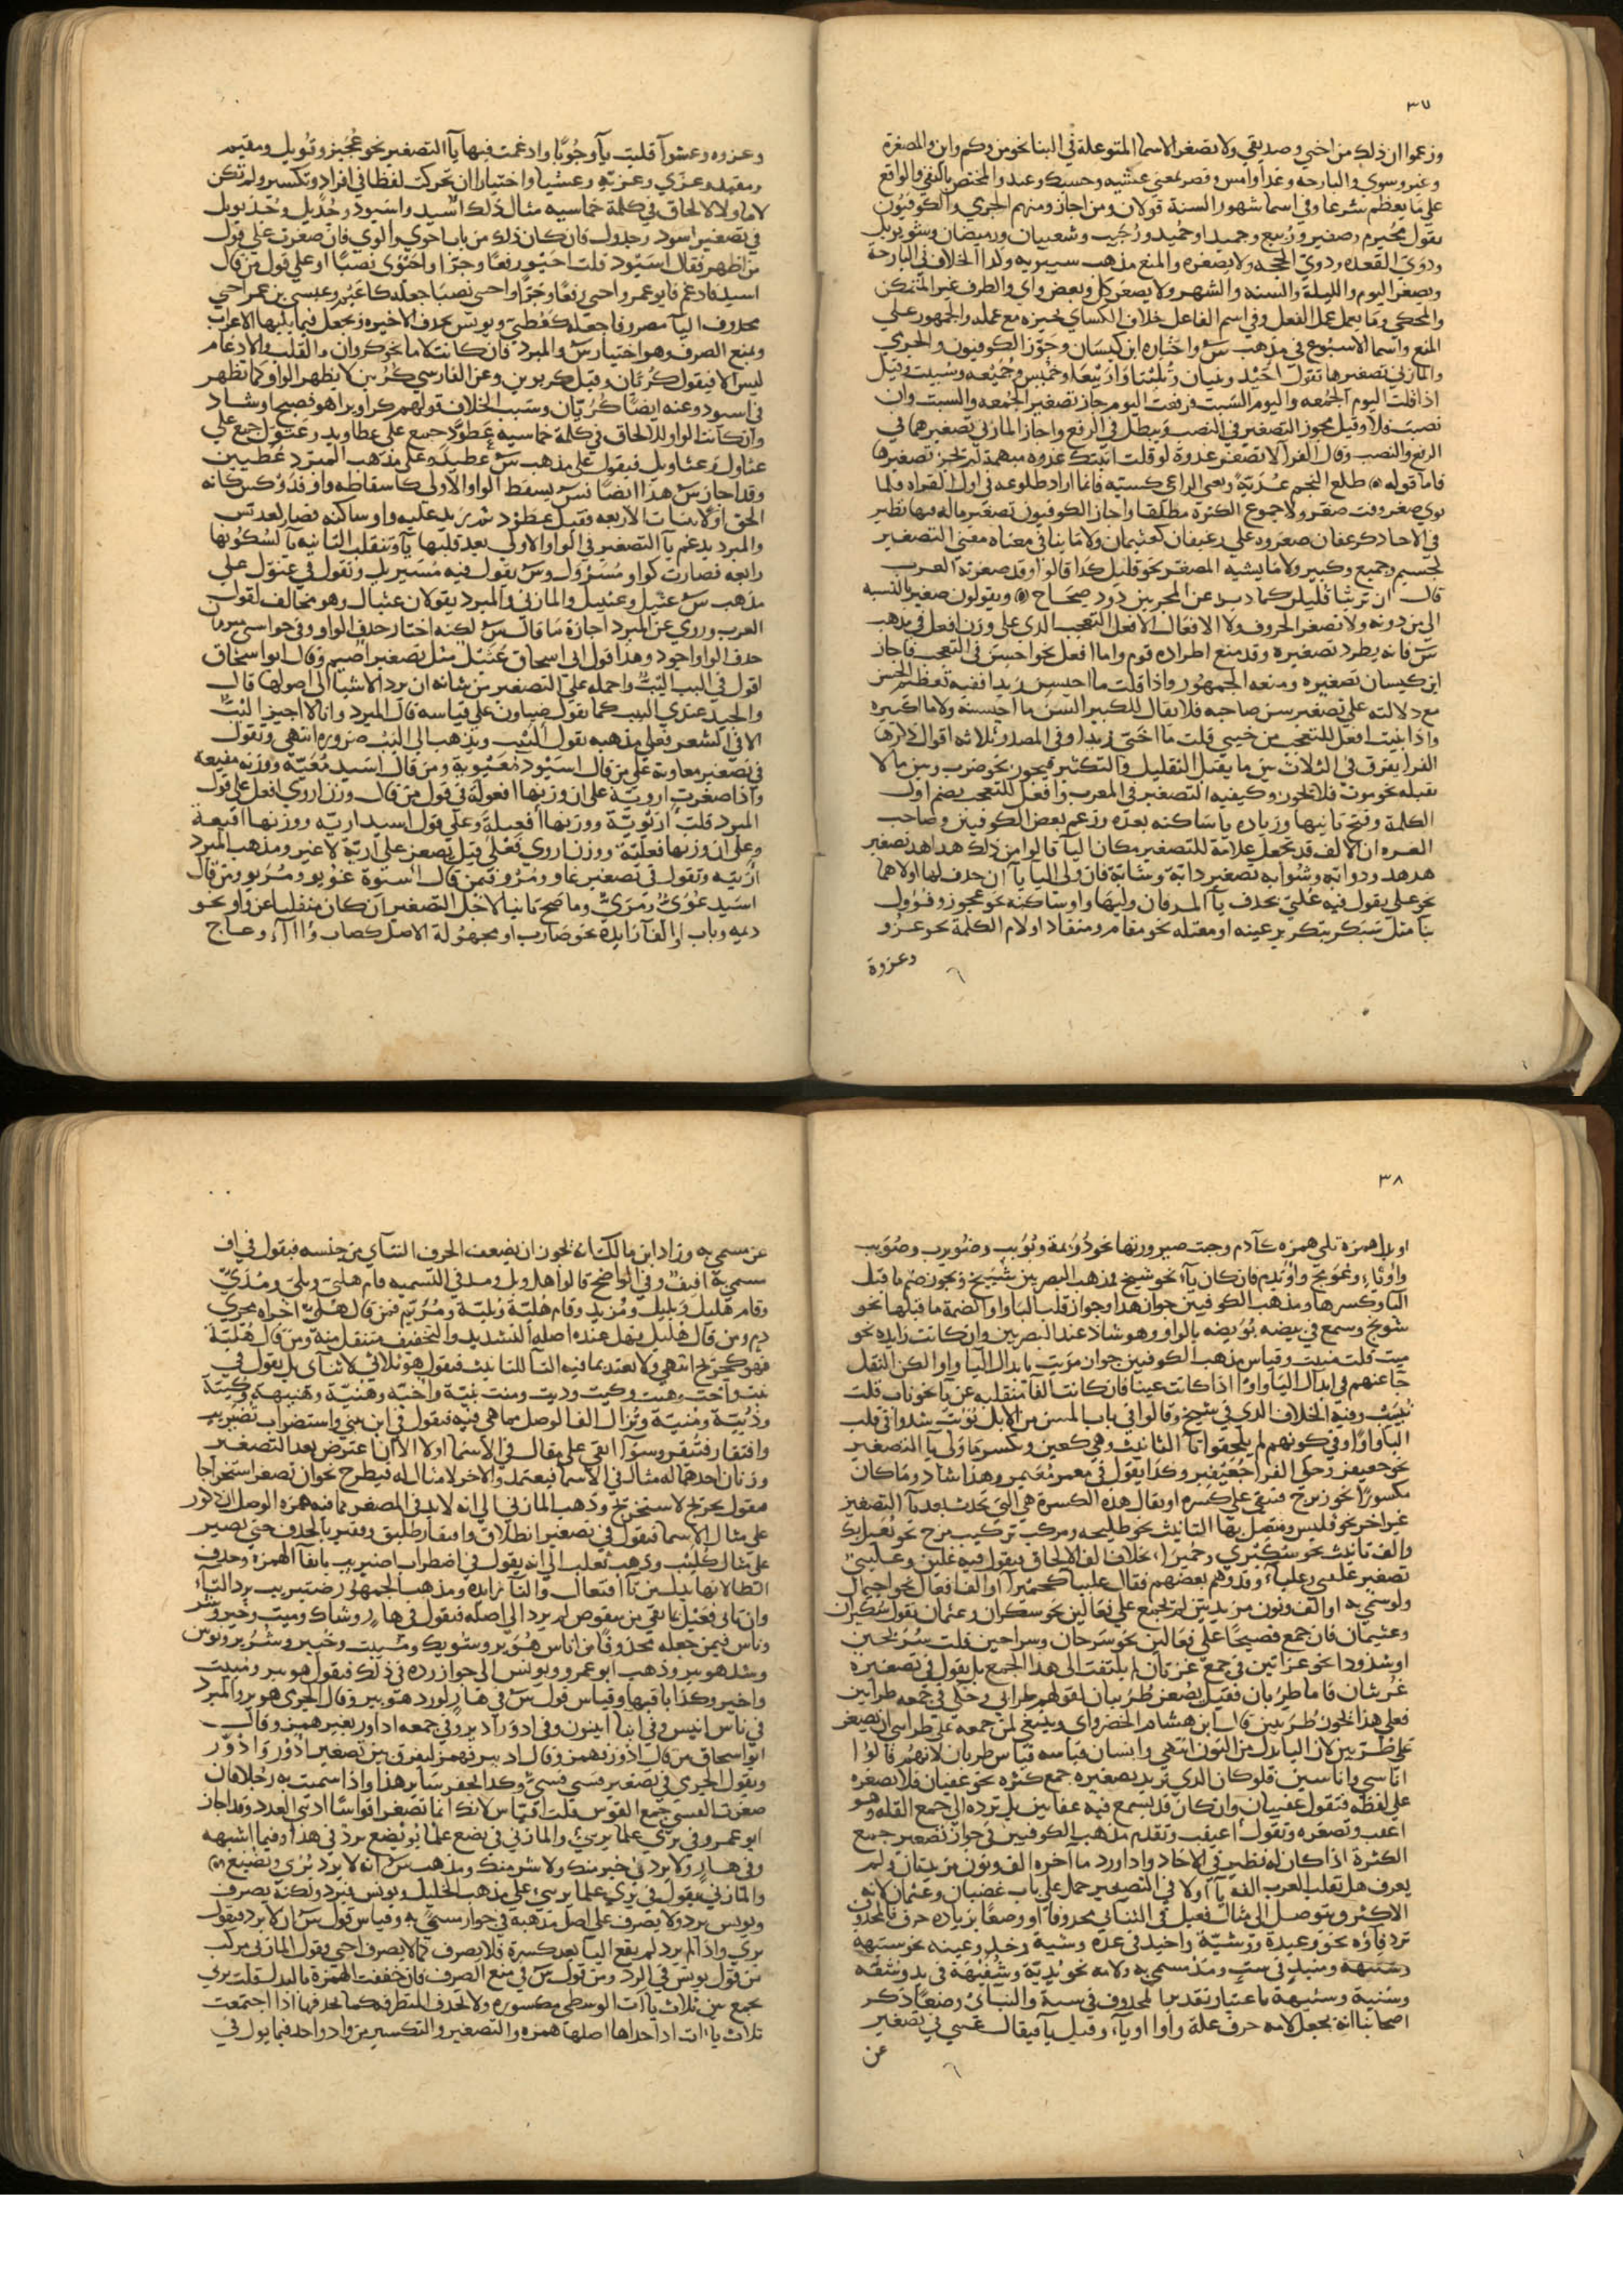 ٣٧
وزعموا ان ذلك من اخي وصديقي ولا تصغر الاسما المتوغلة في البنا نحو من وكم واين والمصغرة
وغير وسوي والبارحه وغدا وامس وقصر بمعنى عشيه وحسبك وعند والمختص بالنفي والواقع
على ما يعظم شرعا وفي اسما شهور السنة قولان ومن اجاز ومنهم الجرمي والكوفيون
يقول محيرم وصفير وربيع وجميدا وحميد ورجيب وشعيبان ورميضان وشويويل
وذوي القعده وذوي الحجه ولا يصغره والمنع مذهب سيبويه وكذا الخلاف في البارحة
ويصغر اليوم والليلة والسنه والشهر ولا يصغر كل وبعض واي والظرف غير المتمكن
والمحكي وما يعمل عمل الفعل وفي اسم الفاعل خلاف الكساي يجيزه مع عمله والجمهور على
المنع واسما الاسبوع في مذهب س واختاره ابن كيسان وجوز الكوفيون والجرمي
والمازني تصغيرها تقول احيد وثنيان وثليثا واربيعا وخميس وجميعه وسبيت وقيل
اذا قلت اليوم الجمعه واليوم السبت فرفعت اليوم جاز تصغير الجمعه والسبت وان
نصبت فلا وقيل يجوز التصغير في النصب ويبطل في الرفع واجاز المازني تصغيرهما في
الرفع والنصب وقال الفرا لا تصغر غدوة لو قلت اتيتك غدوه مبهمة لم يجز تصغيرها
فاما قوله ٥ طلع النجم غدية وبغي الراعي كسيه فانما اراد طلوعه في اول القر اد فلما
نوي صغر وقت صغر ولا جموع الكثرة مطلقا واجاز الكوفيون تصغير ماله فيها نظير
في الاحاد كرغفان صغروه على رغيفان كعثيمان ولا ما ينافي معناه معنى التصغير
لجسيم وجميع وكبير ولا ما يشبه المصغر نحو قليل كذا قالوا وقد صغرته العرب
قال ان ترشا قليل كما ذيد عن المجربين ذود صحاح ٥ ويقولون صغير بالنسبه
الى من دونه ولا تصغر الحروف ولا الافعال الا فعل التعجب الذي على وزن افعل في مذهب
س فانه يطرد تصغيره وقد منع اطراده قوم واما افعل نحو احسن في التعجب فاجاز
ابن كيسان تصغيره ومنعه الجمهور واذا قلت ما احيسن زيدا ففيه تعظيم الحسن
مع دلالته على تصغير سن صاحبه فلا يقال للكبير السن ما احيسنه ولا ما اكيبره
واذا بنيت افعل للتعجب من خيسي قلت ما اختي زيدا وفي المصدر ثلاثه اقوال ذكرها
الفرا يفرق في الثلاث بين ما يقبل التقليل والتكثير فيجوز نحو ضرب وبين ما لا
يقبله نحو موت فلا يجوز وكيفيه التصغير في المعرب وافعل للتعجب بضم اول
الكلمة وفتح ثانيها وزياده يا ساكنه بعده وزعم بعض الكوفيين وصاحب
الغره ان الالف قد تجعل علامة للتصغير مكان اليا قالوا من ذلك هداهد تصغير
هدهد ودوابه وشوابه تصغير دابة وشابة فان ولي اليا يآ ان حذف لها اولاهما
نحو علي يقول فيه علي بحذف يآ المد فان وليها واو ساكنه نحو عجوز وفؤول
بنا مثل سبكر بتكرير عينه او معتله نحو مقام ومنقاد او لام الكلمة نحو غزو
وعزوة
وغزوه وعشوآ قلبت يآ وجوبا وادغمت فيها يآ التصغير نحو عجيز وقويل ومقيم
ومقيد وغزي وغزية وعشيا واختيارا ان تحركت لفظا في افراد وتكسير ولم تكن
لاما ولا لالحاق في كلمة خماسيه مثال ذلك اسيد واسيود وجديل وجديويل
في تصغير اسود وجدول فان كان ذلك من باب احوي والوي فان صغرت على قول
من اظهر فقال اسيود قلت احيو رفعا وجرا واحيوي نصبا او على قول من قال
اسيد فادغم فابو عمرو احي رفعا وجرا واحي نصبا جعله كاعيم وعيسى بن عمر احي
بحذوف اليآ مصروفا جعله كعطي ويونس بحذف الاخيره وتجعل فيما يليها الاعراب
ويمنع الصرف وهو اختيار س والمبرد فان كانت لاما نحو كروان فالقلب والادغام
ليس الا فيقول كريان وقيل كريوين وعن الفارسي كريين لا يظهر الواو كما تظهر
في اسيود وعنه ايضا كريان وسبب الخلاف قولهم كراوين اهو فصيح او شاد
وان كانت الواو للالحاق في كلمة خماسيه عطود جمع على عطاويد وعثول جمع على
عثاول وعثاويل فيقول على مذهب س عطيد وعلى مذهب المبرد عطييد
وقد اجاز س هذا ايضا نسق يسقط الواو الاولى كاسقاطه واو فدوكس كانه
الحق اولا ببنات الاربعه فقيل عطود ثم زيد عليه واو ساكنه فصار كعدبس
والمبرد يدغم يآ التصغير في الواو الاولى بعد قلبها يآ وتنقلب الثانيه يآ لسكونها
رابعه فصارت كواو مسرول وس يقول فيه مسيريل وتقول في عثول على
مذهب س عثيل وعثييل والمازني والمبرد يقولان عثيال وهو مخالف لقول
العرب وروي عن المبرد اجازة ما قال س لكنه اختار حذف الواو وفي حواسي مبرمان
حذف الواو اجود وهذا قول ابي اسحاق عثيل مثل تصغير اصيم وقال ابو اسحاق
اقول في البب اليب واحمله على التصغير من شانه ان يرد الاشيا الى اصولها قال
والجيد عندي البيب كما يقول ضياون على قياسه قال المبرد وانا لا اجيز اليب
الا في الشعر فعلى مذهبه يقول اليبب ويذهب الى البب ضرورة انتهى وتقول
في تصغير معاوية على من قال اسيود معيوية ومن قال اسيد معية ووزنه مفيعه
واذا صغرت اروية على ان وزنها افعولة في قول من قال وزن اروي افعل على قول
المبرد قلت اريوية ووزنها افعيلة وعلى قول اسيد ارية ووزنها افيعة
وعلى ان وزنها فعلية ووزن اروي فعلى قيل تصغر على ارية لا غير ومذهب المبرد
اريية وتقول في تصغير غاو ومرو فيمن قال اسنوة غويو ومريو ومن قال
اسيد غوي ومري وما صح ثانيا لاجل التصغير ان كان منقلبا عن واو نحو
ديمه وباب او الفآ زايده نحو ضارب او مجهولة الاصل كصاب وآآآء وعاج
٣٨
او بدل همزة تلي همزه كآدم وجبت صيرورتها نحو دويمة وبويب وضويرب وصويب
واوئا وعويج واويدم فان كان يآء نحو شيخ فمذهب البصريين شييخ ويجوز ضم ما قبل
اليا وكسرها ومذهب الكوفيين جواز هذا وجواز قلب اليا واوا لضمة ما قبلها نحو
شويخ وسمع في بيضه بويضه بالواو وهو شاذ عند البصريين وان كانت زايده نحو
ميت قلت مييت وقياس مذهب الكوفيين جواز مويت بابدال اليا واوا لكن النقل
جا عنهم في ابدال اليا واوا اذا كانت عينا فان كانت الفا منقلبه عن يآ نحو ناب قلت
نييب وفيه الخلاف الذي في شيخ وقالوا في باب المسن من الابل نويب شدوا في قلب
اليآ واوا وفي كونهم لم يلحقوا تآ التانيث وهي كعين ويكسر ما ولي يآ التصغير
نحو جعيفر وحكى الفرا جعيفير وكذا يقول في معمر معيمير وهذا شاذ وما كان
مكسورا نحو زبرج فتبقى على كسره او يقال هذه الكسرة هي التي تحدث بعد يآ التصغير
غير اخر نحو فليس ومتصل بها التانيث نحو طليحه ومركب تركيب مزج نحو بعيلبك
والف تانيث نحو سكيري وحميرا بخلاف الف الالحاق فيقول فيه عليق وعليبي
تصغير علقى وعلباء وقد وهم بعضهم فقال عليبا كحميرا او الف افعال نحو اجيمال
ولو سمي به او الف ونون مزيدتين لم تجمع على فعالين نحو سكران وعثمان تقول سكيران
وعثيمان فان جمع فصيحا على فعالين نحو سرحان وسراحين قلت سريحين
او شذوذا نحو غراثين في جمع غرثان لم يلتفت الى هذا الجمع بل يقول في تصغيره
غريثان فاما ظربان فقيل يصغر ظريبان لقولهم ظرابي وحكي في جمعه ظرابين
فعلى هذا تجوز ظريبين قال ابن هشام الخضراوي وينبغي لمن جمعه على ظرابي ان يصغر
على ظريبين لان اليا بدل من النون انتهى وانسان قياسه قياس ظربان لانهم قالوا
اناسي واناسين فلو كان الذي تريد تصغيره جمع كثره نحو عقبان فلا يصغره
على لفظه فتقول عقيبان وان كان قد يسمع فيه عقابين بل ترده الى جمع القله وهو
اعقب وتصغره وتقول اعيقب وتقدم مذهب الكوفيين في جواز تصغير جمع
الكثرة اذا كان له نظير في الاحاد واذا ورد ما آخره الف ونون مزيدتان ولم
يعرف هل تقلب العرب الفه يآ او لا في التصغير حمل على باب غضبان وعثمان لانه
الاكثر ويتوصل الى مثال فعيل في الثنائي محذوفا او وضعا بزياده حرف فالمحذوف
ترد فآؤه نحو وعيدة ووشية واخيذ في عده وشية وخذ وعينه نحو ستيهه
وستيهة ومنيذ في ست ومذ مسمى به ولامه نحو يدية وشفيهة في يد وشفه
وسنية وسنيهة باعتبار تقدير المحذوف في سنة والثنائي وضعا ذكر
اصحابنا انه يجعل لامه حرف علة واوا او يآ، وقيل يآ فيقال عني في تصغير
عن
عن مسمى به وزاد ابن مالك انه يجوز ان يضعف الحرف الثاني من جنسه فيقول في اف
مسمى به افيف وفي الواضح قالوا هل وبل ومذ في التسميه قام هلي وبلي ومذي
وقام هليل وبليل ومذيد وقام هلية وبلية ومذية فمن قال هلي اجراه مجرى
دم ومن قال هليل فهل عنده اصله التشديد والتخفيف منتقل منه ومن قال هلية
فهو كحرج انتهى ولا يعتد بما فيه التآ للتانيث فيقول هو ثلاثي لا ثنآي بل يقول في
بنت واخت وهنت وكيت وذيت ومنت بنية واخية وهنية وهنيهة وكيية
وذيية ومنية وتزال الف الوصل مما هي فيه فيقول في ابن بني واستضراب تضيريب
وافتقار فتيقير وسوآ ابقي على مثال في الاسما او لا الا ان اعترض بعد التصغير
وزنان احدهما له مثال في الاسما فيعتمد والاخر لا مثال له فيطرح نحو ان تصغر استخراجا
فيقول تخيريج لا سخيريج وذهب المازني الى انه لا بد في المصغر مما فيه همزة الوصل ان يكون
على مثال الاسما فيقول في تصغير انطلاق وافتقار طليق وفقير بالحذف حتى يصير
على مثال كليب وذهب ثعلب الى انه يقول في اضطراب اضيريب بابقآ الهمزه وحذف
الطا لانها بدل من تآ افتعال والتآ زايده ومذهب الجمهور ضتيريب برد التآ
وان تاتى فعيل بما بقي من منقوص لم يرد الى اصله فيقول في هار وشاك وميت وخير وشر
وناس فيمن جعله محذوفا من اناس هوير وشويك ومييت وخيير وشرير ونويس
وشذ هويير وذهب ابو عمرو ويونس الى جواز رده في ذلك فيقول هويير ومييت
واخير وكذا باقيها وقياس قول س في هار لو رد هويير وقال الجرمي هوير والمبرد
في ناس انيس وفي ابنا ابينون وفي ادؤر اديير وفي جمعه اداور بغير همز وقال
ابو اسحاق من قال ادؤر بهمز وقال اديير فهمز ليفرق بين تصغير ادؤر وادور
ويقول الجرمي في تصغير قسي قسي وكذا لحفر ساير هذا واذا سميت به رجلا فان
صغرت القسي جمع القوس قلت اقيياس لانك انما تصغر اقواسا ادنى العدد وقد اجاز
ابو عمرو في يري علما يرئي والمازني في يضع علما يويضع برد في هذا وفيما اشبهه
وفي هار ولا يرد في خير منك ولا شر منك ومذهب س انه لا يرد يري ويضيع
والمازني يقول في يري علما يريئ على مذهب الخليل ويونس فيرد ولكنه يصرف
ويونس يرد ولا يصرف على اصل مذهبه في جوار سمي به وقياس قول س ان لا يرد فيقول
يري واذا لم يرد لم يقع اليا بعد كسرة فلا يصرف كما لا يصرف احي وقول المازني مركب
من قول يونس في الرد ومن قول س في منع الصرف فان خففت الهمزة بالبدل قلت يري
يجمع بين ثلاث ياآت الوسطى مكسوره ولا تحذف المتطرفه كما تحذفها اذا اجتمعت
ثلاث ياءات اذ احداها اصلها همزه والتصغير والتكسير من واد واحد فيما يول في